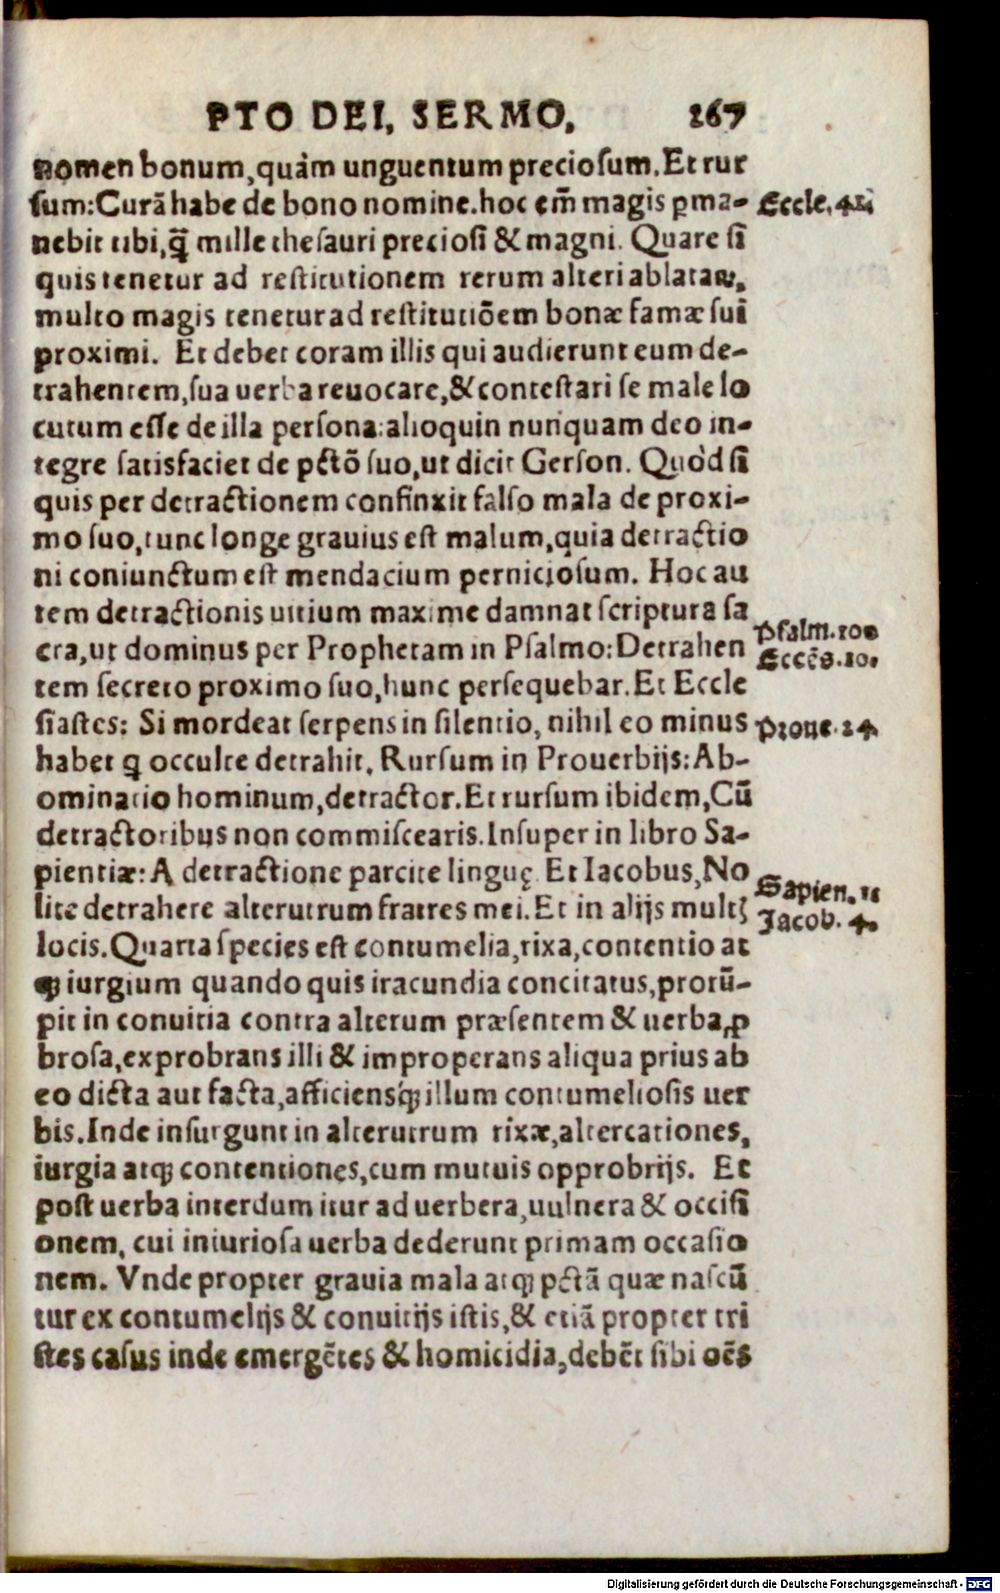 PTO DEI, SERMO, 267
nomen bonum,quàm unguentum preciosum.Et rur
sum:Curā habe de bono nomine.hoc em̄ magis ꝑma-
Eccle.41
nebit tibi,q̄ mille thesauri preciosi & magni. Quare si
quis tenetur ad restitutionem rerum alteri ablataꝝ,
multo magis tenetur ad restitutiōem bonæ famæ sui
proximi. Et debet coram illis qui audierunt eum de-
trahentem,sua uerba reuocare,& contestari se male lo
cutum esse de illa persona:alioquin nunquam deo in-
tegre satisfaciet de pctō suo,ut dicit Gerson. Quòd si
quis per detractionem confinxit falso mala de proxi-
mo suo,tunc longe grauius est malum,quia detractio
ni coniunctum est mendacium perniciosum. Hoc au
tem detractionis uitium maxime damnat scriptura sa
cra,ut dominus per Prophetam in Psalmo:Detrahen
Psalm.100
Eccēs.10.
tem secreto proximo suo,hunc persequebar.Et Eccle
siastes: Si mordeat serpens in silentio, nihil eo minus
Proue.24
habet ꝗ occulte detrahit. Rursum in Prouerbijs:Ab-
ominatio hominum,detractor.Et rursum ibidem,Cū
detractoribus non commiscearis.Insuper in libro Sa-
pientiæ: A detractione parcite linguę. Et Iacobus,No
Sapien.11
lite detrahere alterutrum fratres mei.Et in alijs multꝭ
Jacob.4.
locis.Quarta species est contumelia,rixa,contentio at
ꝙ iurgium quando quis iracundia concitatus,prorū-
pit in conuitia contra alterum præsentem & uerba ꝓ
brosa,exprobrans illi & improperans aliqua prius ab
eo dicta aut facta,afficiensq́ꝫ illum contumeliosis uer
bis.Inde insurgunt in alterutrum rixæ,altercationes,
iurgia atqꝫ contentiones,cum mutuis opprobrijs. Et
post uerba interdum itur ad uerbera,uulnera & occisi
onem, cui iniuriosa uerba dederunt primam occasio
nem. Vnde propter grauia mala atqꝫ pctā quæ nascū
tur ex contumelijs & conuitijs istis,& etiā propter tri
stes casus inde emergētes & homicidia,debēt sibi oēs
Digitalisierung gefördert durch die Deutsche Forschungsgemeinschaft - DFG